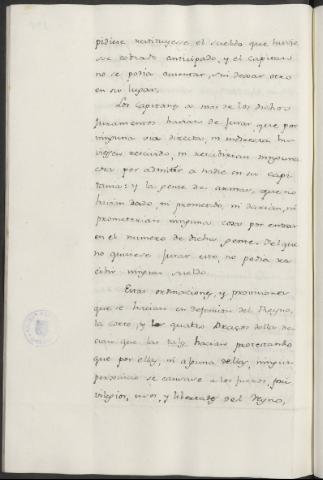 pidiese restituyese el sueldo que huviese
se cobrado anticipado, y el Capitan
no se podia ausentar, ni dexar otro
en su lugar.
Los Capitanes a mas de los dichos
Juramentos havian de Jurar, que por
ninguna via directa, ni indirecta hu-
viessen recivido, ni recibirian ninguna
cosa por admitir a nadie en su capi-
tania: y la gente de armas, que no
havian dado, ni prometido, ni darian, ni
prometerian ninguna cosa por entrar
en el numero de dicha gente. Y el que
no quisiese Jurar esto, no podia re-
cibir ningun sueldo.
Estas ordinaciones, y provisiones
que se hacian en defension del Reyno,
la corte, y los quatro Brazos della de-
cian que las tales hacian protestando
que por ellas, ni alguna dellas, ningun
perjuicio se causase a los fueros, pri-
vilegios, usos, y libertades del Reyno,